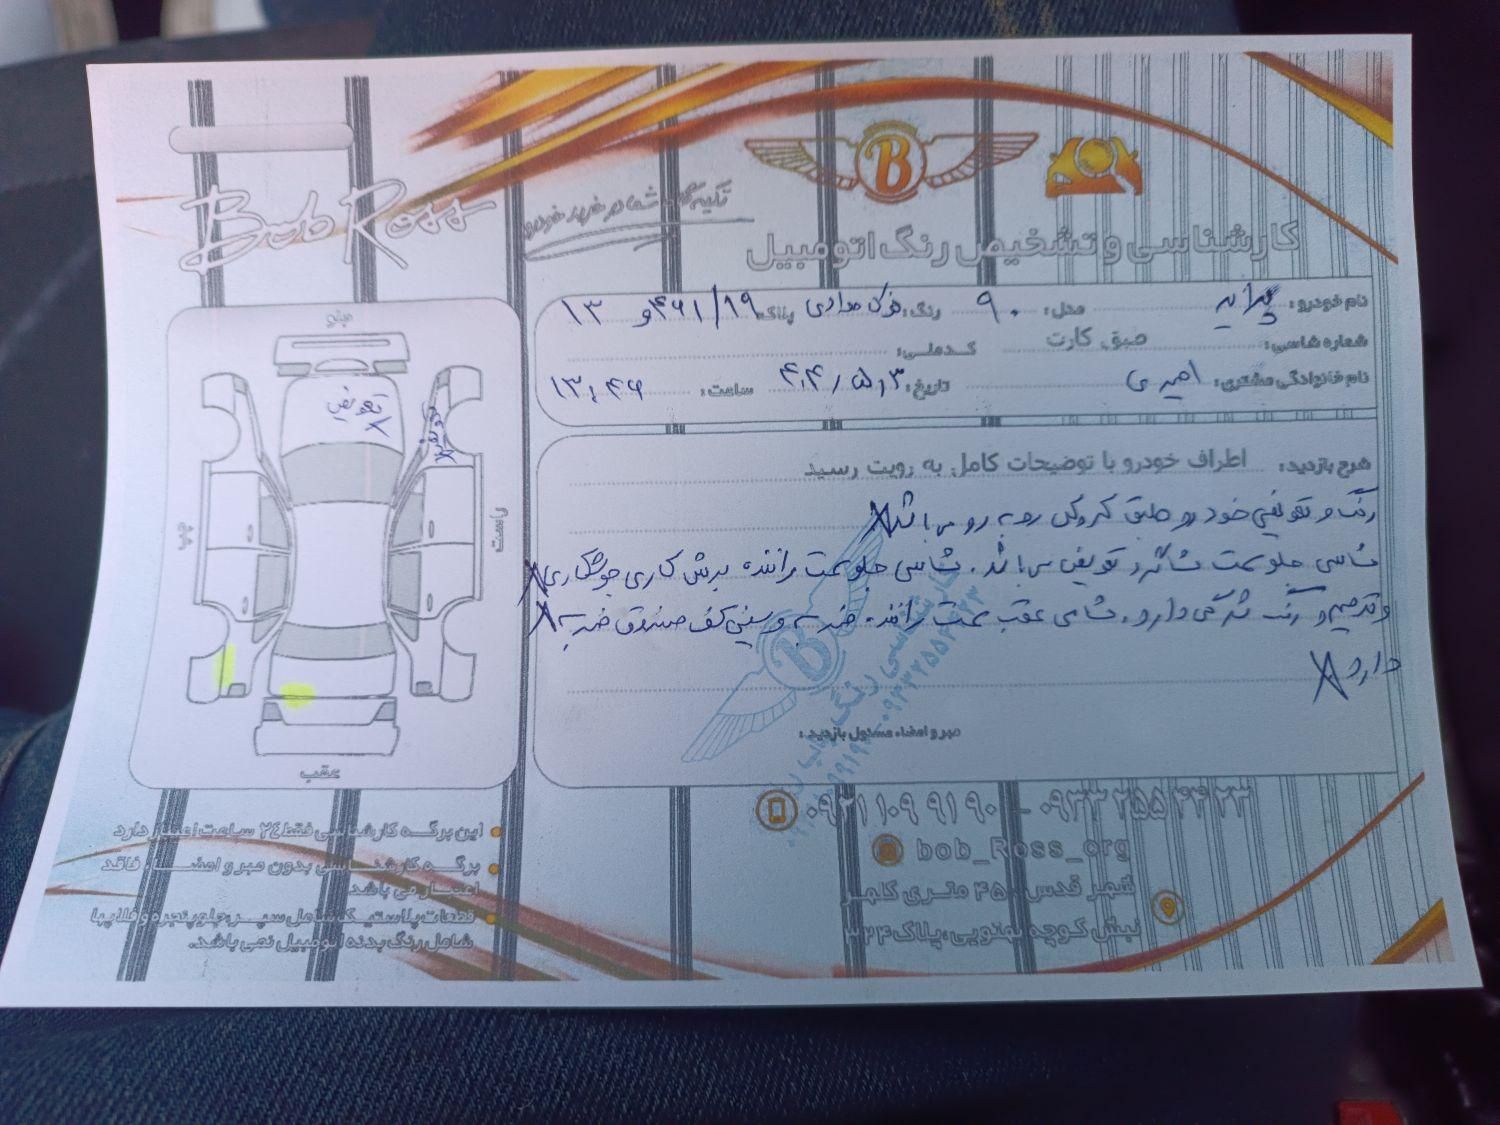 Bob Ross
تکیه‌گاه شما در خرید خودرو
B
کارشناسی و تشخیص رنگ اتومبیل
نام خودرو: پراید مدل: ۹۰ رنگ: نوک مدادی پلاک:
شماره شاسی: طبق کارت کدملی:
نام خانوادگی مشتری: امیری تاریخ: ۴۰۴/۵/۳ ساعت: ۱۳:۴۶
شرح بازدید: اطراف خودرو با توضیحات کامل به رویت رسید
رنگ و تعویضی خودرو طبق کروکی روبه رو می باشد
شاسی جلو سمت شاگرد تعویض می باشد. شاسی جلو سمت راننده برش کاری جوشکاری
و ترمیم و رنگ شدگی دارد. شاسی عقب سمت راننده ضربه و سینی کف صندوق ضربه
دارد
مهر و امضاء مسئول بازدید:
جلو
تعویض
تعویض
چپ
راست
عقب
این برگه کارشناسی فقط ۲۴ ساعت اعتبار دارد
برگه کارشناسی بدون مهر و امضاء فاقد
اعتبار می باشد
قطعات پلاستیک شامل سپر، جلو پنجره و قلاپها
شامل رنگ بدنه اتومبیل نمی باشد.
۰۹۲۱ ۱۰۹ ۹۱ ۹۰ - ۰۹۳۳ ۲۵۵ ۴۴۲۳
bob_Ross_org
شهر قدس ۴۵ متری کلهر
نبش کوچه پلاک ۳۲۴